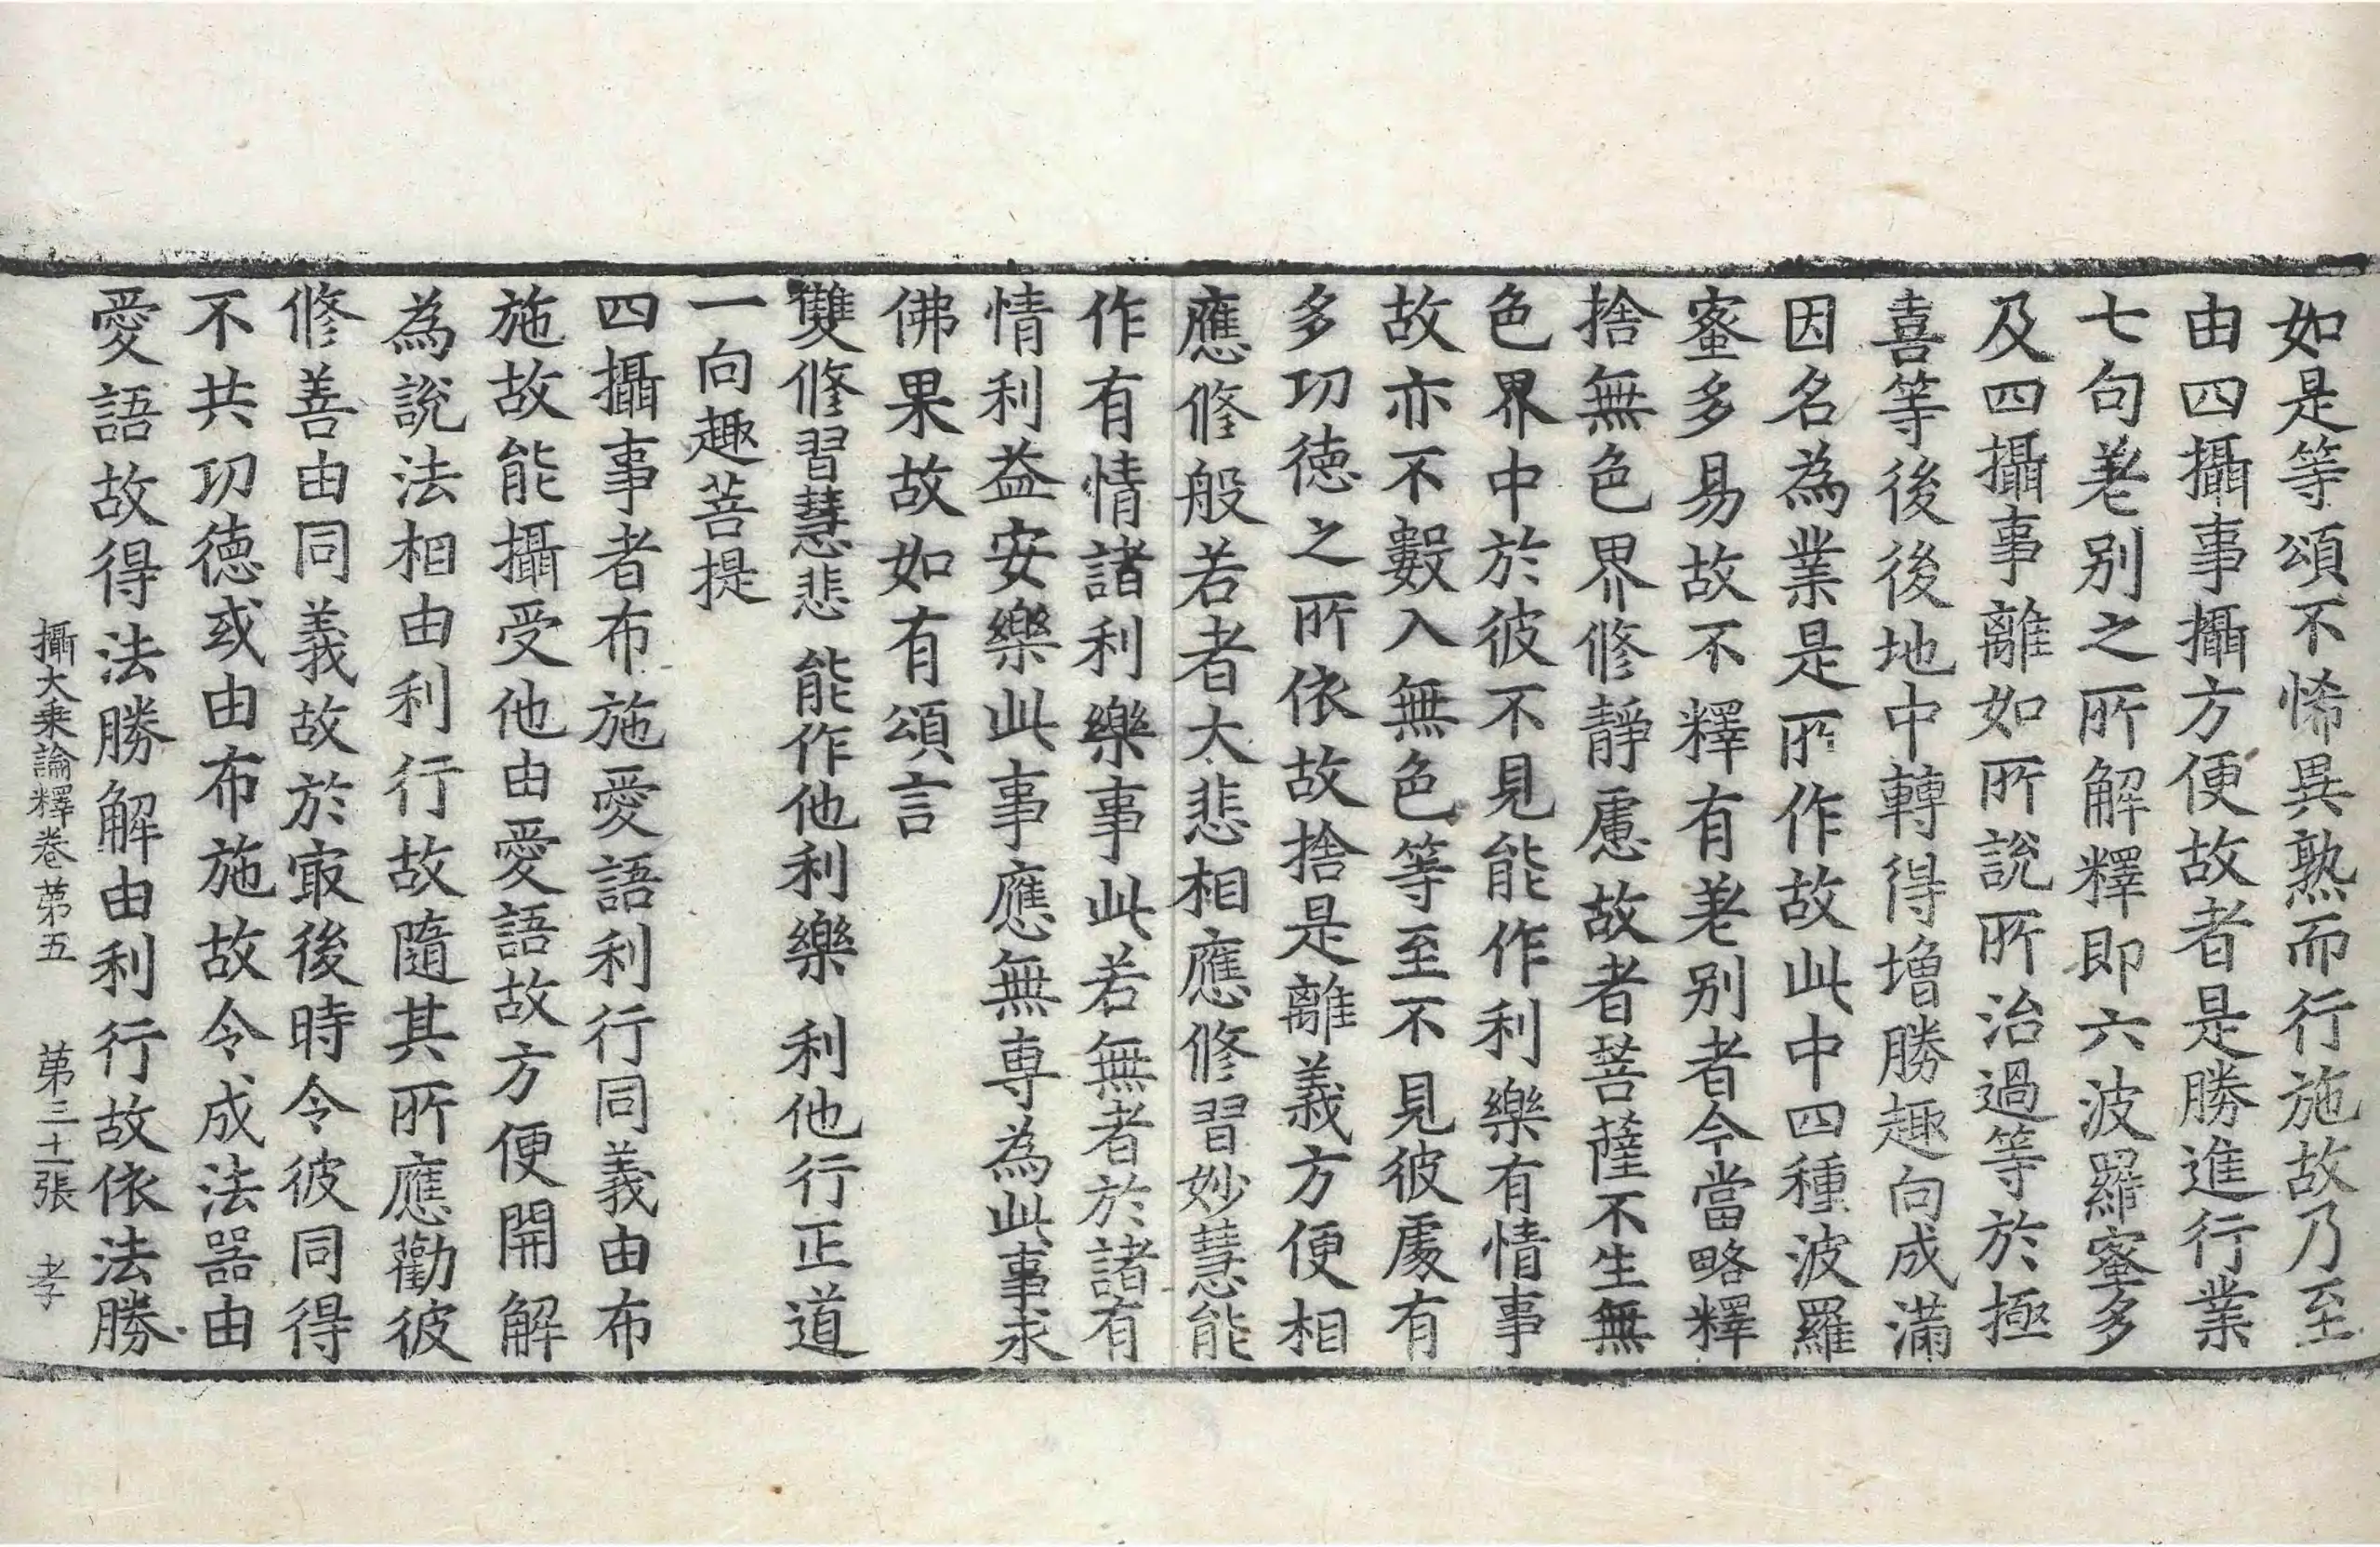 如是等頌不悕異熟而行施故乃至
由四攝事攝方便故者是勝進行業
七句差別之所解釋即六波羅蜜多
及四攝事離如所說所治過等於極
喜等後後地中轉得增勝趣向成滿
因名為業是所作故此中四種波羅
蜜多易故不釋有差別者今當略釋
捨無色界修靜慮故者菩薩不生無
色界中於彼不見能作利樂有情事
故亦不數入無色等至不見彼處有
多功德之所依故捨是離義方便相
應修般若者大悲相應修習妙慧能
作有情諸利樂事此若無者於諸有
情利益安樂此事應無專為此事求
佛果故如有頌言
雙修習慧悲 能作他利樂 利他行正道
一向趣菩提
四攝事者布施愛語利行同義由布
施故能攝受他由愛語故方便開解
為說法相由利行故隨其所應勸彼
修善由同義故於㝡後時令彼同得
不共功德或由布施故令成法器由
愛語故得法勝解由利行故依法勝
攝大乘論釋卷第五 第三十張 孝